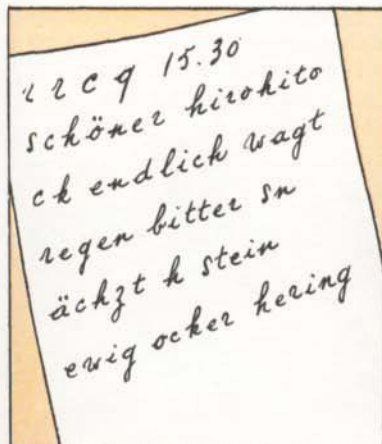 r r c q 15.30
schöner hirohito
ck endlich wagt
regen bitter sn
ächzt h stein
ewig ocker hering